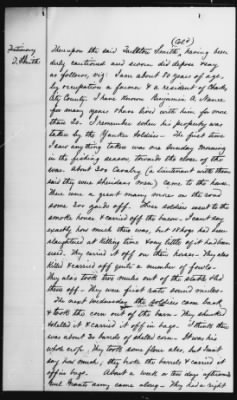 Testimony
T. Smith
Thereupon the said Fulkton Smith, having been
duly cautioned and sworn did depose & say
as follows, viz: I am about 50 years of age,
by occupation a farmer & a resident of Charles
City County. I have known Benjamin A. Nance
for many years & have lived with him for more
than 20. I remember when his property was
taken by the Yankee Soldiers – The first time
I saw anything taken was one Sunday morning
in the fishing season towards the close of the
war. about 300 Cavalry (a Lieutenant with them
said they were Sheridans men) came to the house.
There were a great many more on the road
some 200 yards off. These soldiers went to the
smoke house & carried off the bacon. I cant say
exactly how much there was, but 18 hogs had been
slaughtered at killing time & very little of it had been
used. They carried it off on their horses – They also
killed & carried off quite a number of fowls –
They also took two mules out of the stable & led
them off – They were first rate sound mules.
The next Wednesday the soldiers came back
& took the corn out of the barn – They shucked
shelled it & carried it off in bags. I think there
was about 30 barrels of shelled corn – It was his
whole crop. They took some flour also, but I cant
say how much; they broke the barrels & carried it
off in bags. About a week or ten days afterwards
Genl Grants army came along – They had a right